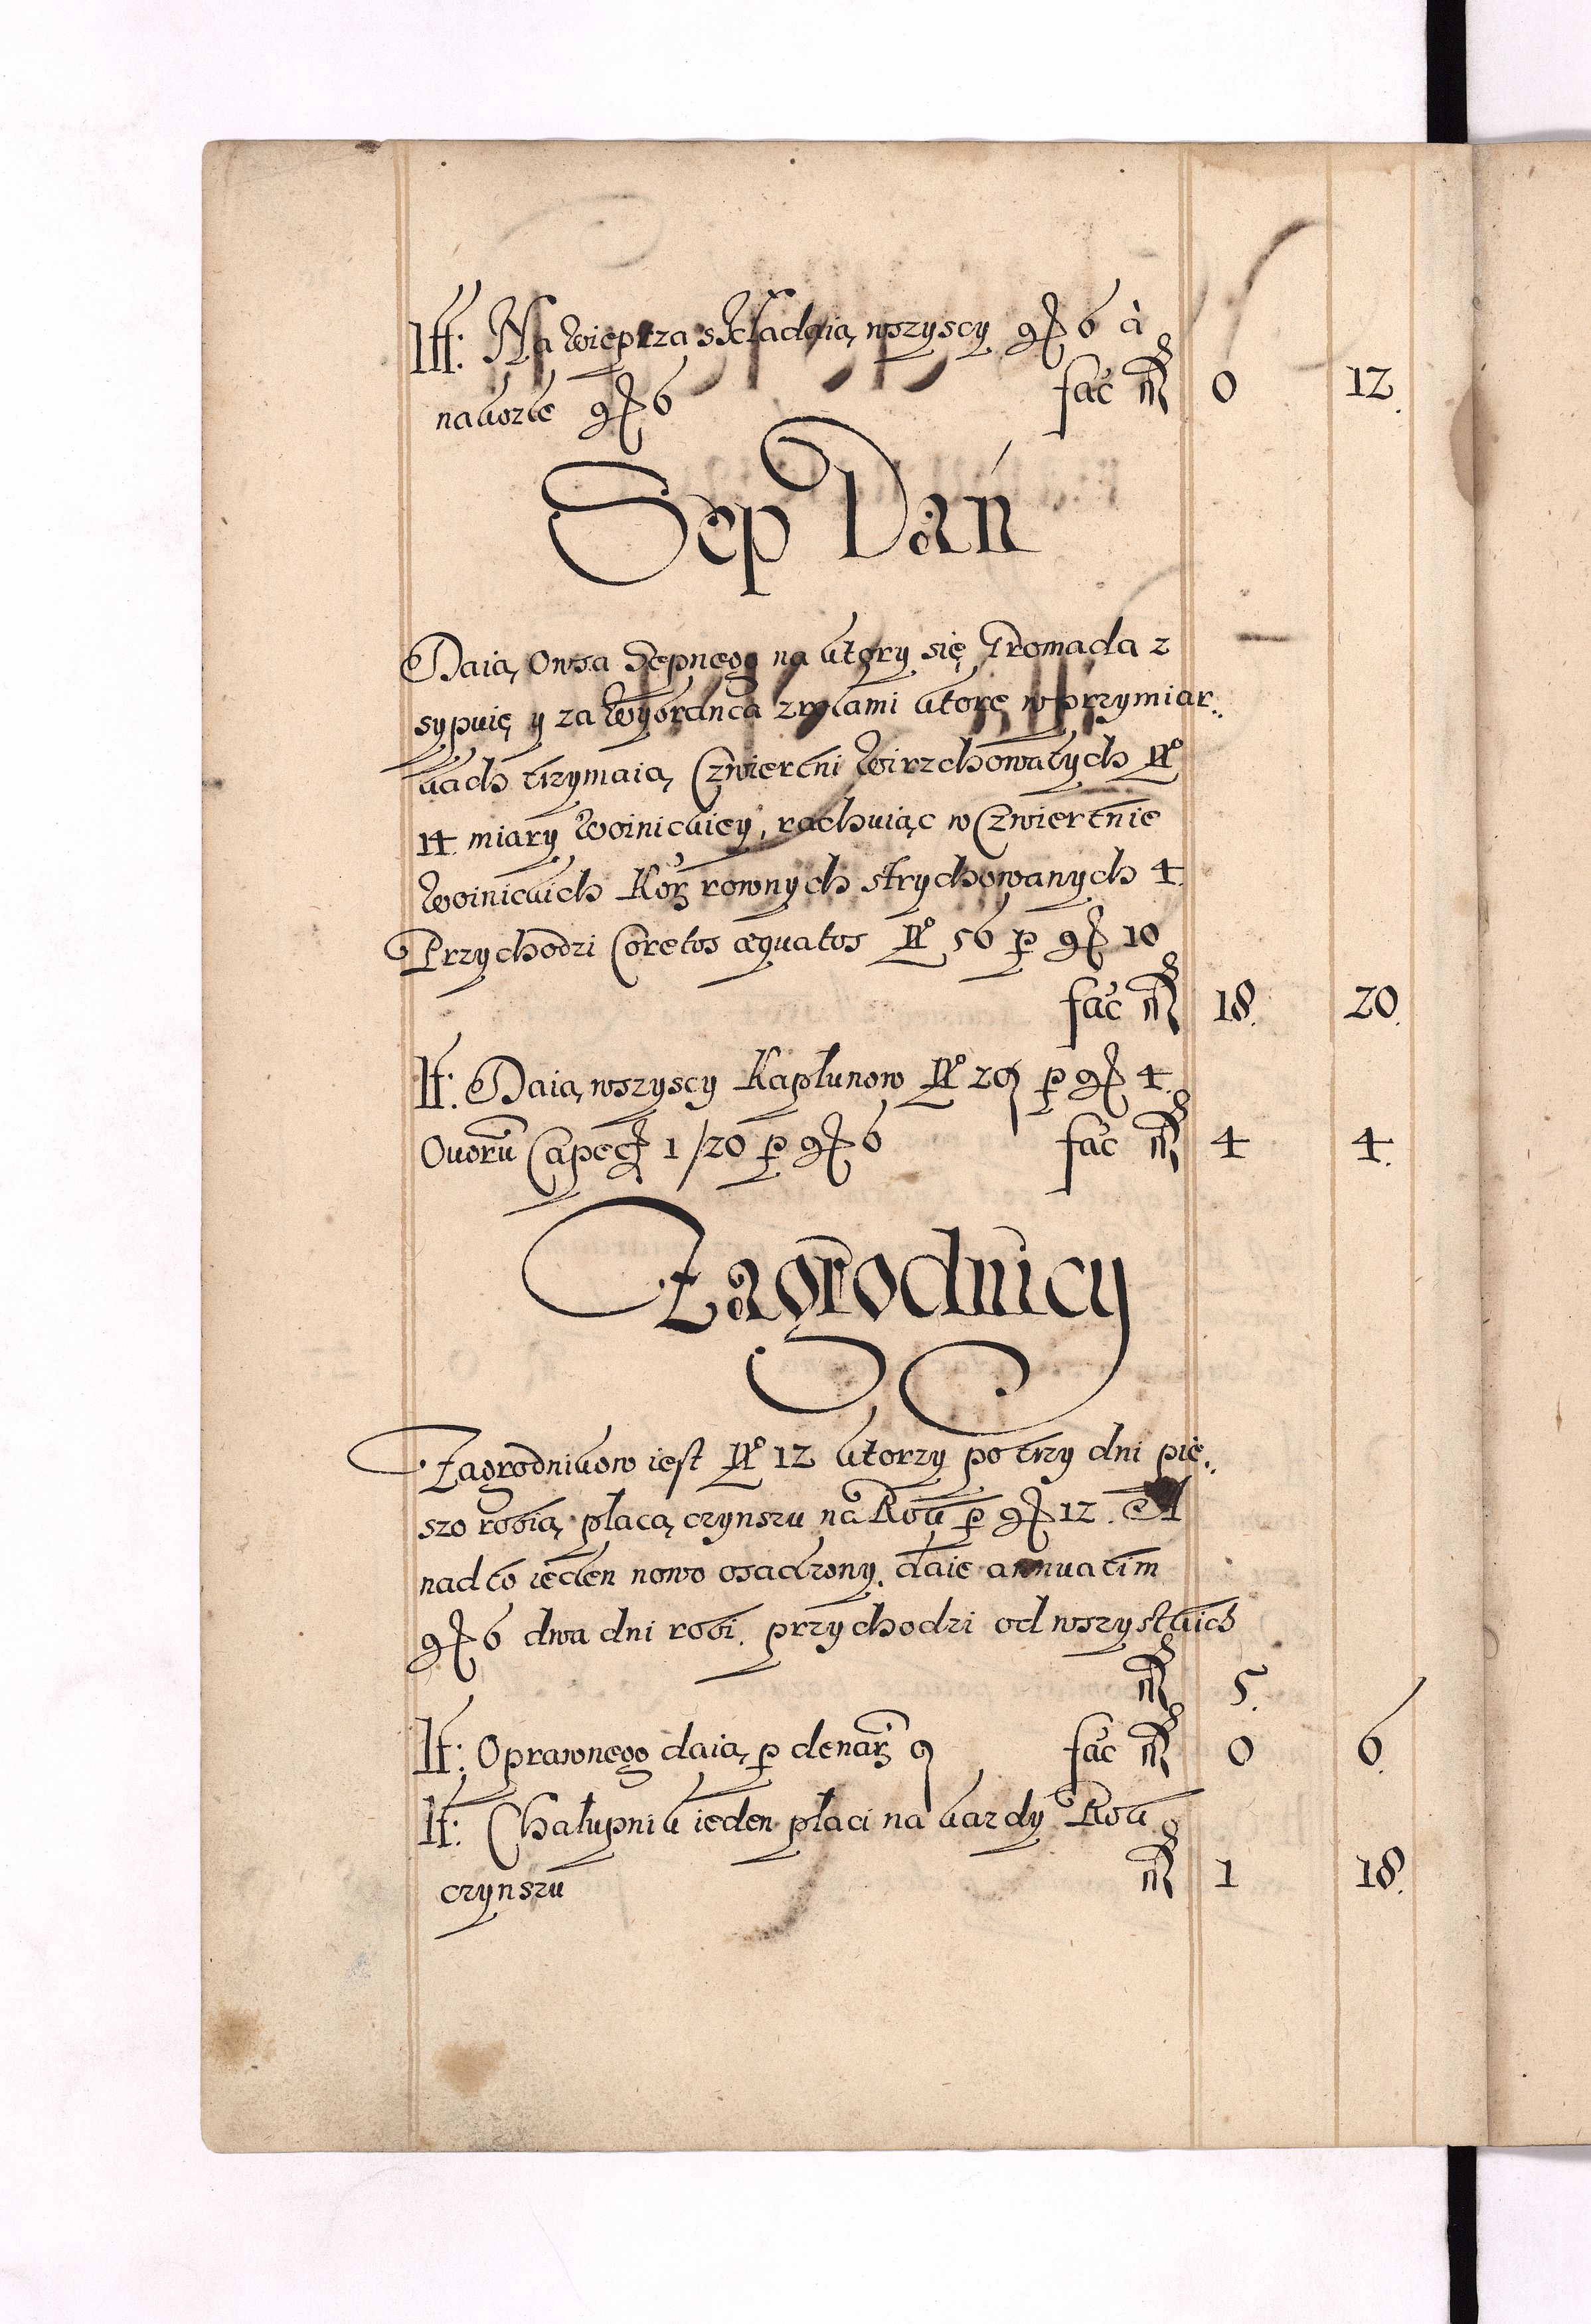 It: Na wieprza składaią wszyscy gr 6 à
na korze gr 6 fac̃ fl 0 12.
Sep Dań
Daią Owsa Sepnego na ktory się Gromada z
sypuię y za Wybranca z rolami ktore w przymiar:,
kach trzymaią, Czwiertni Wirzchowatych No
14 miary Woinickiey, rachuiąc w Czwiertnie
Woinickich Korz rownych strychowanych 4.
Przychodzi Coretos æquatos No 56 p gr 10
fac̃ fl 18. 20.
It: Daią wszyscy Kapłunow No 29 p gr 4.
Ouorũ Capec 1/20 p gr 6 fac̃ fl 4 4.
Zagrodnicy
Zagrodnikow iest No 12 ktorzy po trzy dni pie:,
szo robią, płacą czynszu na Rok p gr 12. A
nad to ieden nowo osadzony, daie annuatim
gr 6 dwa dni robi. przychodzi od wszystkich
fl 5.
It: Oprawnego daią p denar 9 fac̃ fl 0 6.
It: Chałupnik ieden płaci na kazdy Rok
czynszu fl 1 18.